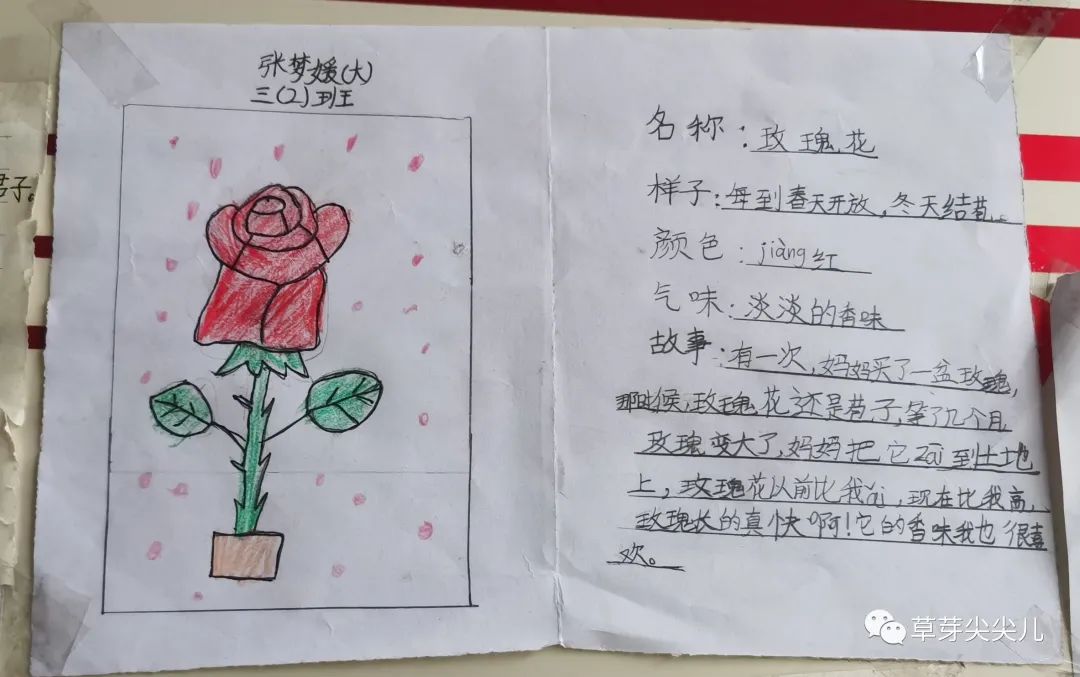 张梦媛(大)
三(2)班
名称：玫瑰花
样子：每到春天开放，冬天结苞。
颜色：jiàng红
气味：淡淡的香味
故事：有一次，妈妈买了一盆玫瑰，
那时候，玫瑰花还是苞子，等了几个月
玫瑰变大了，妈妈把它zāi到土地
上，玫瑰花以前比我ǎi，现在比我高，
玫瑰长的真快啊！它的香味我也很喜
欢。
子。
草芽尖尖儿